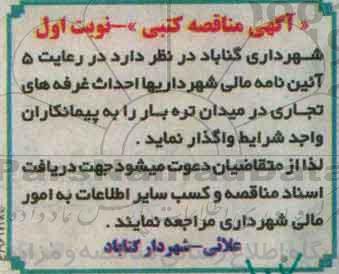 « آگهی مناقصه کتبی »–نوبت اول
شهرداری گناباد در نظر دارد در رعایت ۵
آئین نامه مالی شهرداریها احداث غرفه های
تجاری در میدان تره بار را به پیمانکاران
واجد شرایط واگذار نماید .
لذا از متقاضیان دعوت میشود جهت دریافت
اسناد مناقصه و کسب سایر اطلاعات به امور
مالی شهرداری مراجعه نمایند .
علائی–شهردار گناباد